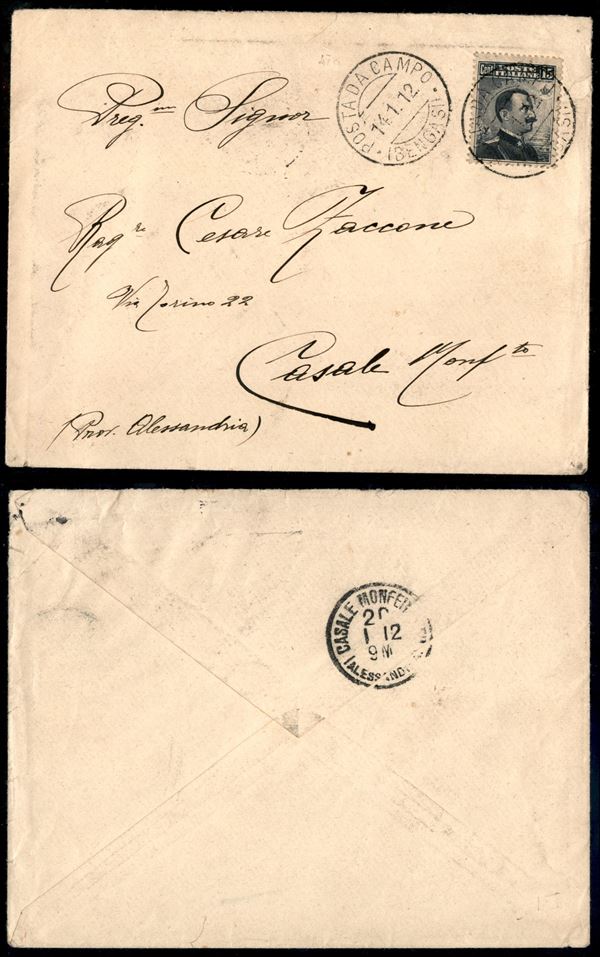 Preg.mo Signor
POSTA DA CAMPO
14.1.12.
(BENGHASI)
Cent. 15
POSTE ITALIANE
Rag.re Cesare Zaccone
Via Torino 22
Casale Monf.to
(Prov. Alessandria)
CASALE MONFER
20
1 12
9M
(ALESSAND